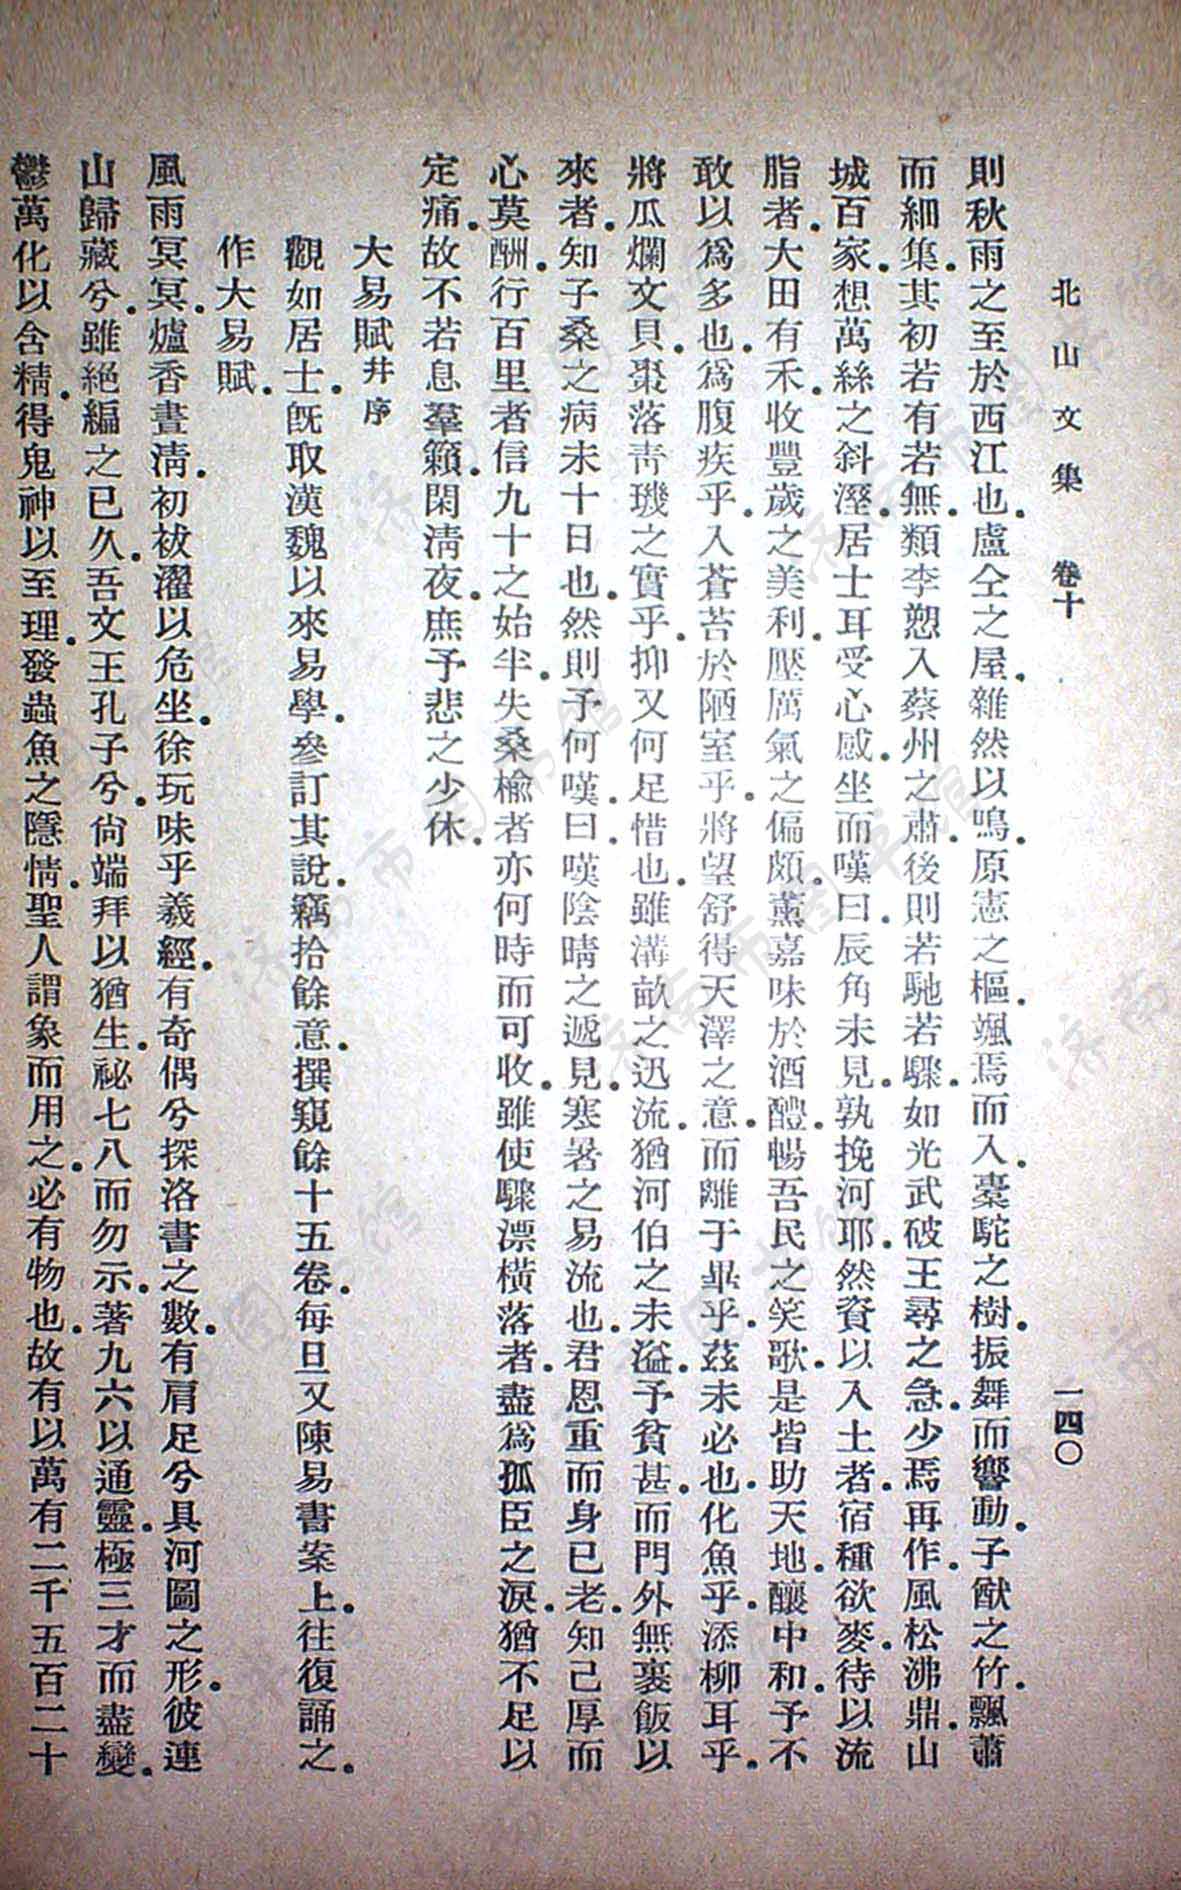 北山文集　卷十　一四〇
則秋雨之至於西江也．盧仝之屋．雜然以鳴．原憲之樞．颯焉而入．橐駝之樹．振舞而響動．子猷之竹．飄蕭
而細集．其初若有若無．類李愬入蔡州之肅．後則若馳若驟．如光武破王尋之急．少焉再作．風松沸鼎．山
城百家．想萬絲之斜溼．居士耳受心感．坐而嘆曰．辰角未見．孰挽河耶．然資以入土者．宿種欲麥．待以流
脂者．大田有禾．收豐歲之美利．壓厲氣之偏頗．薰嘉味於酒醴．暢吾民之笑歌．是皆助天地．釀中和．予不
敢以爲多也．爲腹疾乎．入蒼苔於陋室乎．將望舒得天澤之意．而離于畢乎．茲未必也．化魚乎．添柳耳乎．
將瓜爛文貝．棗落靑璣之實乎．抑又何足惜也．雖溝畝之迅流．猶河伯之未溢．予貧甚．而門外無裹飯以
來者．知子桑之病未十日也．然則予何嘆．曰．嘆陰晴之遞見．寒暑之易流也．君恩重而身已老．知己厚而
心莫酬．行百里者．信九十之始半．失桑榆者．亦何時而可收．雖使驟漂橫落者．盡爲孤臣之淚．猶不足以
定痛．故不若息羣籟．閑淸夜．庶予悲之少休．
大易賦幷序
觀如居士．旣取漢魏以來易學．參訂其說．竊拾餘意．撰窺餘十五卷．每旦又陳易書案上．往復誦之．
作大易賦．
風雨冥冥．爐香晝淸．初祓濯以危坐．徐玩味乎羲經．有奇偶兮探洛書之數．有肩足兮具河圖之形．彼連
山歸藏兮．雖絕編之已久．吾文王孔子兮．尙端拜以猶生．祕七八而勿示．著九六以通靈．極三才而盡變．
鬱萬化以含精．得鬼神以至理．發蟲魚之隱情．聖人謂象而用之．必有物也．故有以萬有二千五百二十